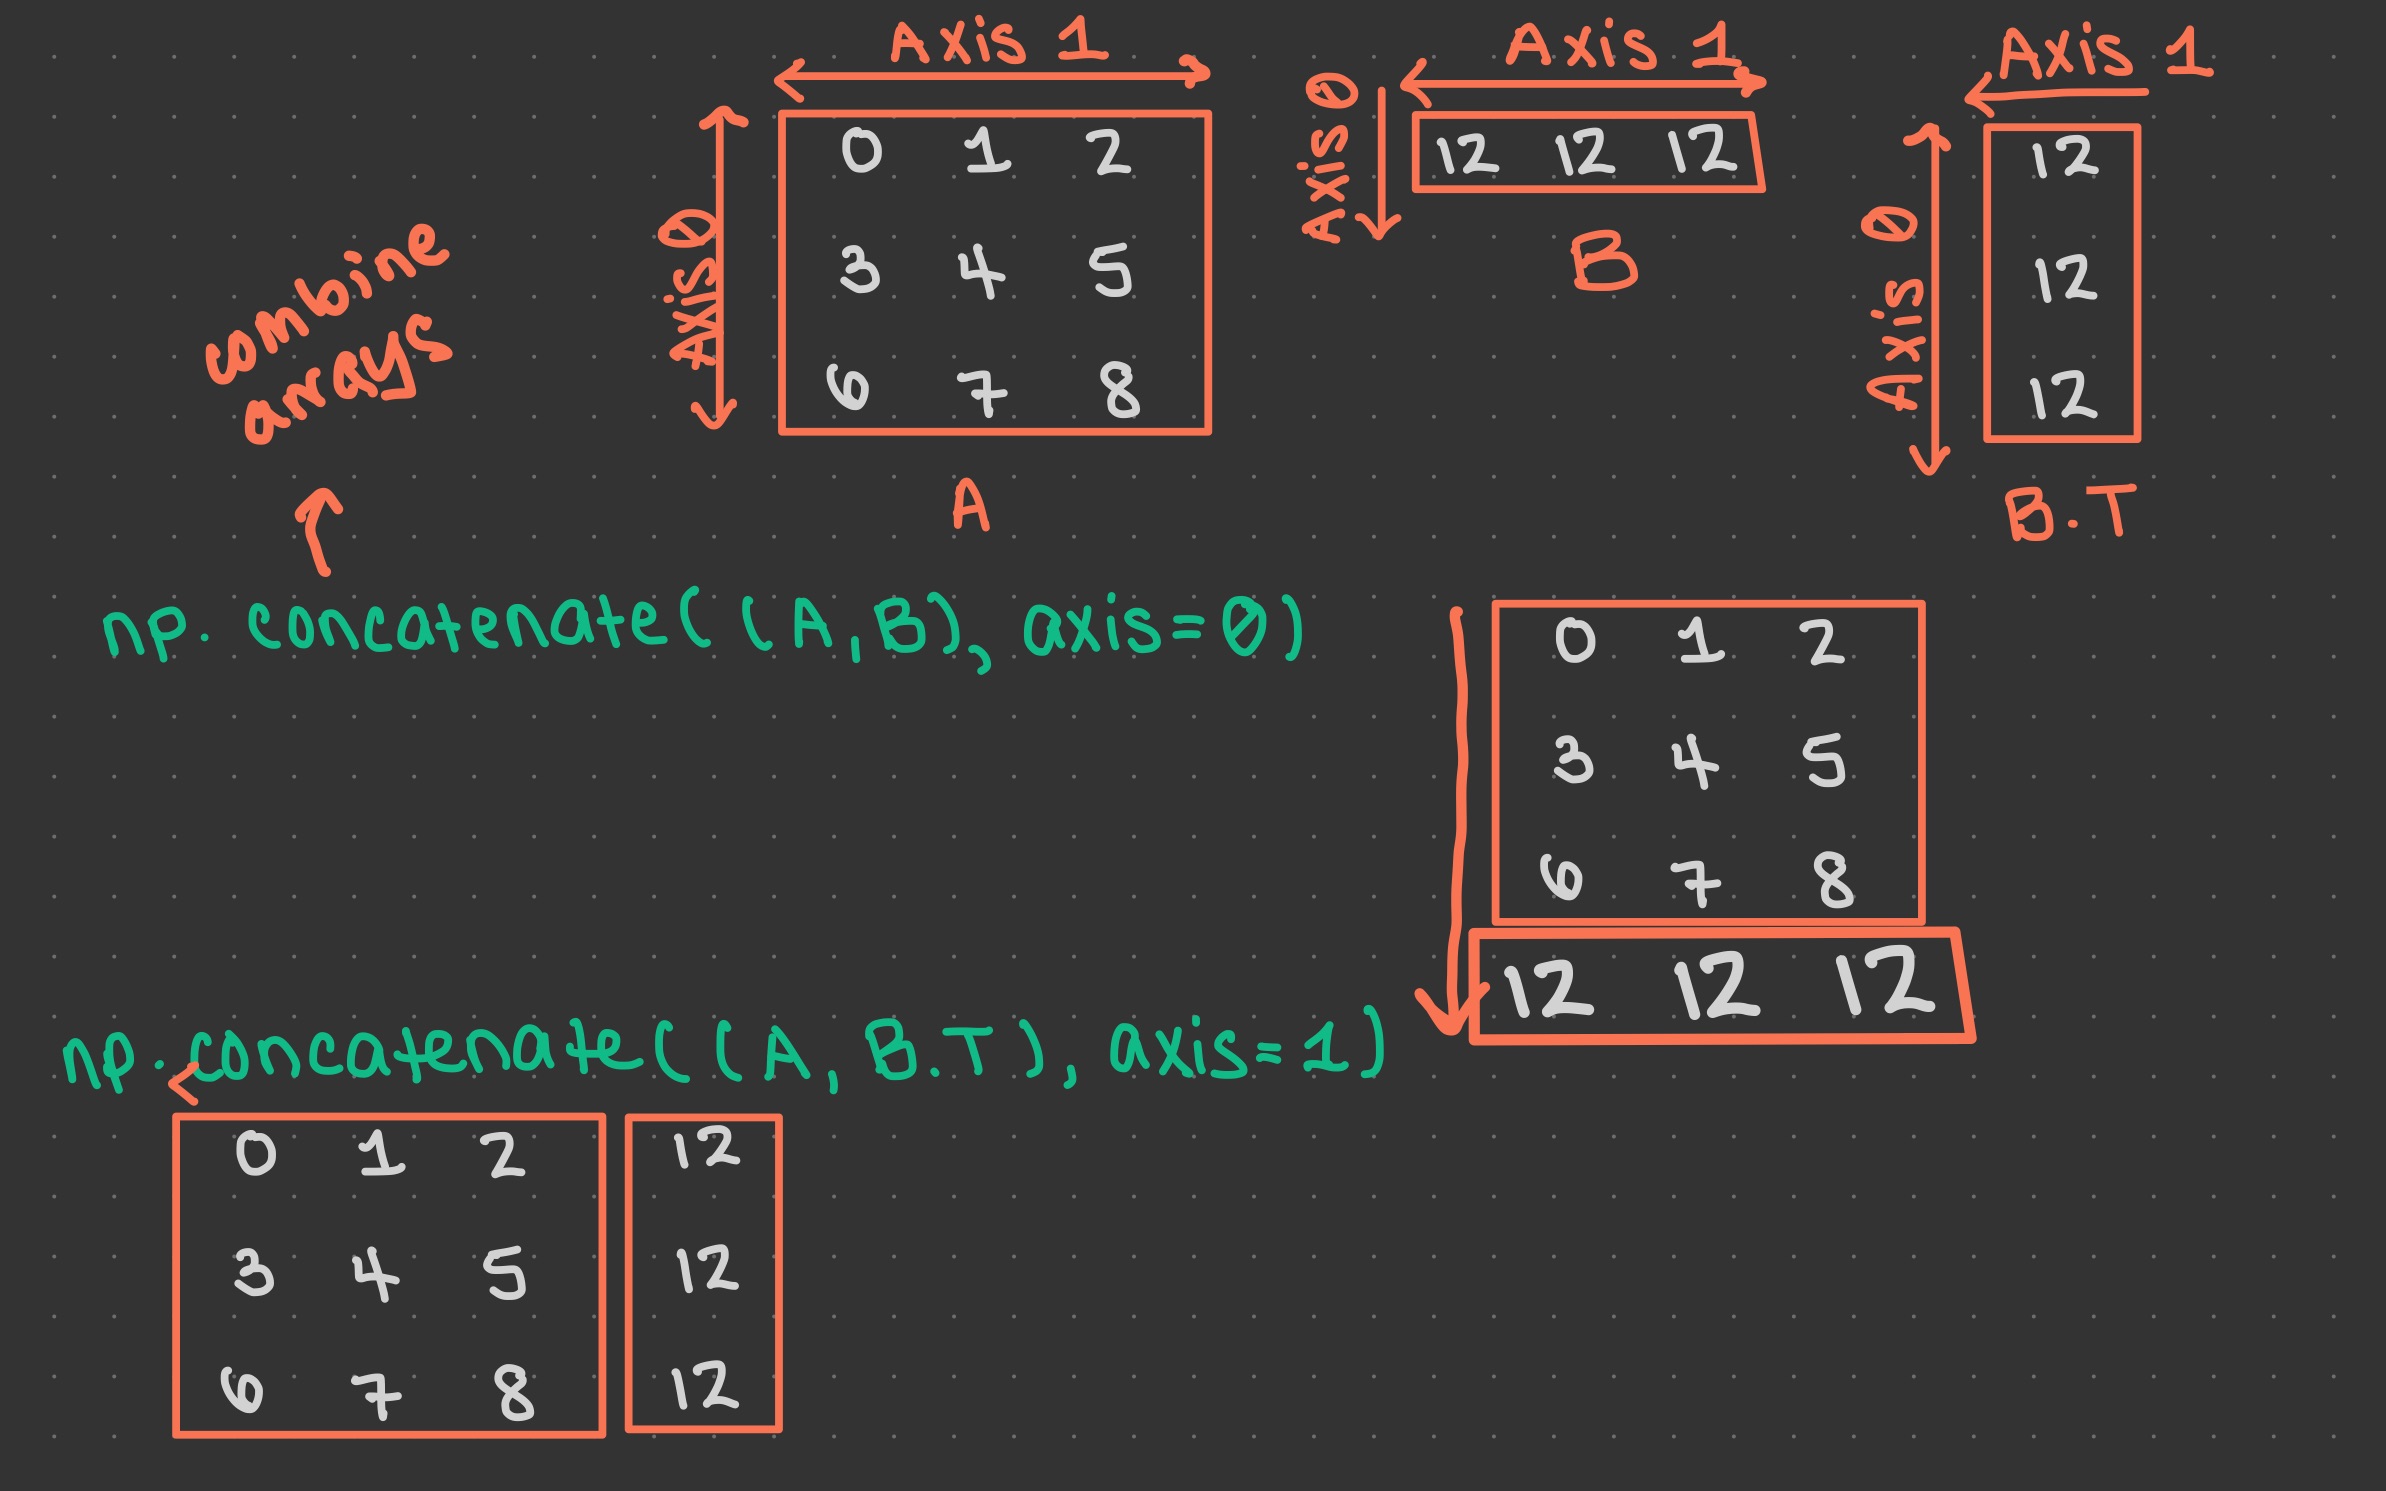 Axis 1
Axis 0
0 1 2
3 4 5
6 7 8
A
Axis 1
Axis 0
12 12 12
B
Axis 1
Axis 0
12
12
12
B.T
combine
arrays
np.concatenate((A,B), axis=0)
0 1 2
3 4 5
6 7 8
12 12 12
np.concatenate((A, B.T), axis=1)
0 1 2 12
3 4 5 12
6 7 8 12